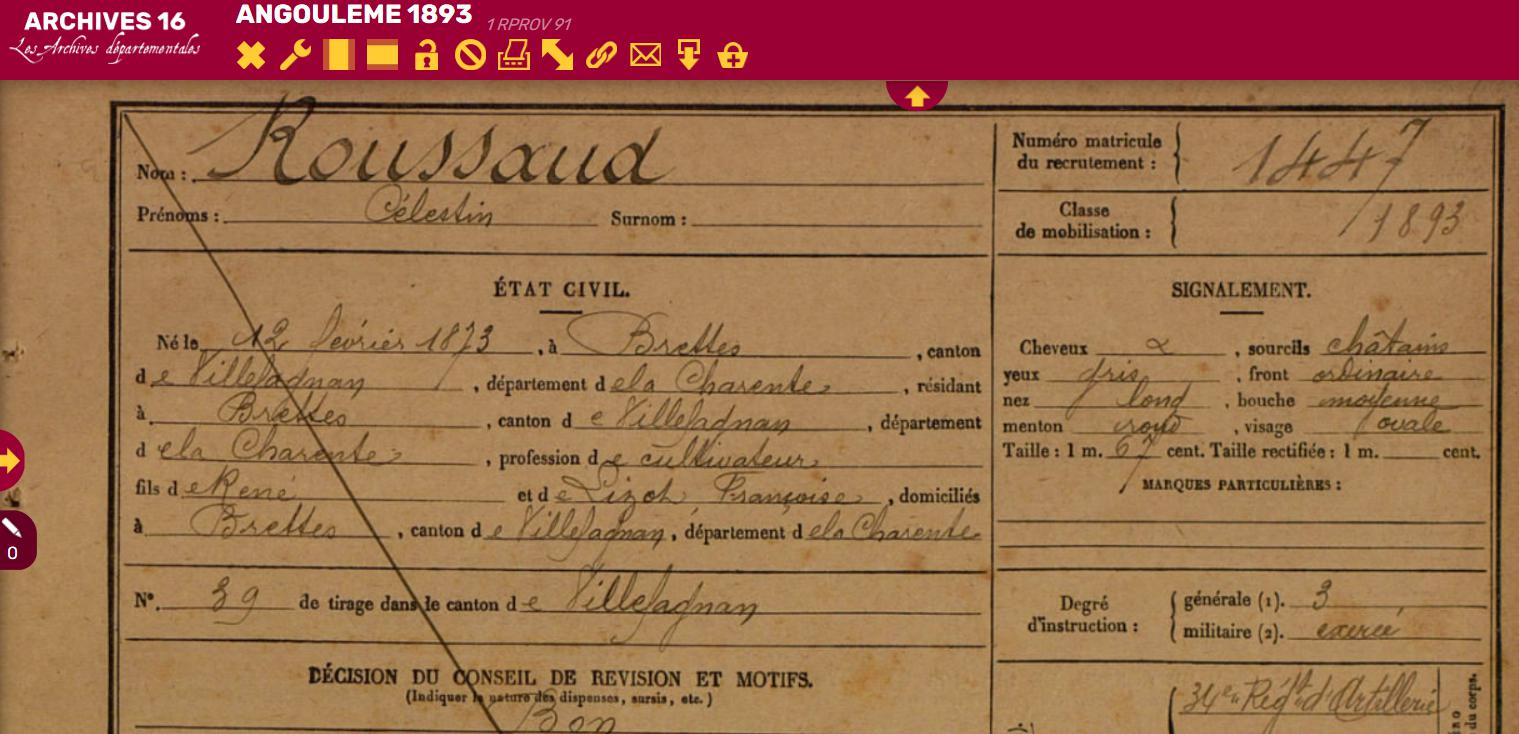 ARCHIVES 16
Les Archives départementales
ANGOULEME 1893 1 RPROV 91
Nom : Roussaud
Prénoms : Célestin Surnom :
Numéro matricule du recrutement : 1447
Classe de mobilisation : 1893
ÉTAT CIVIL.
Né le 12 février 1873, à Brettes, canton
de Villefagnan, département de la Charente, résidant
à Brettes, canton de Villefagnan, département
de la Charente, profession de cultivateur
fils de René et de Lizot Françoise, domiciliés
à Brettes, canton de Villefagnan, département de la Charente
N° 39 de tirage dans le canton de Villefagnan
DÉCISION DU CONSEIL DE REVISION ET MOTIFS.
(Indiquer la nature des dispenses, sursis, etc.)
Bon
SIGNALEMENT.
Cheveux &, sourcils châtains
yeux gris, front ordinaire
nez long, bouche moyenne
menton rond, visage ovale
Taille : 1 m. 67 cent. Taille rectifiée : 1 m. cent.
MARQUES PARTICULIÈRES :
Degré d'instruction : générale (1). 3
militaire (2). exercé
34e Régt d'Artillerie
du corps.
0